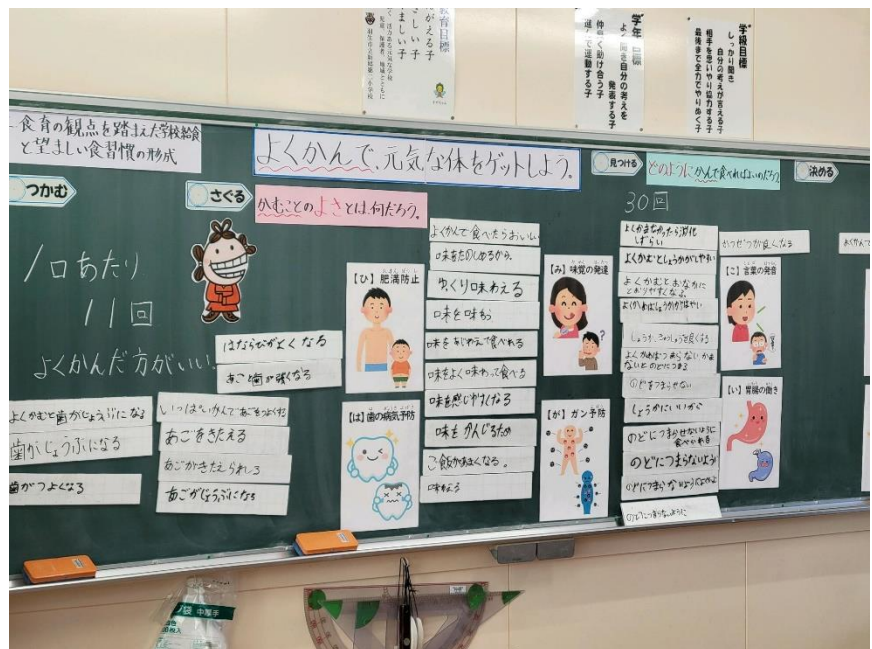 教育目標
がえる子
さしい子
ましい子
学年目標
よく聞き自分の考えを
発表する子
仲良く助け合う子
進んで運動する子
学級目標
しっかり聞き
自分の考えが言える子
相手を思いやり協力する子
最後まで全力でやりぬく子
食育の観点を踏まえた学校給食
と望ましい食習慣の形成
よくかんで、元気な体をゲットしよう。
つかむ
さぐる
かむことのよさとは、何だろう。
見つける
どのようにかんで食べればよいのだろう
決める
30回
1口あたり
11回
よくかんだ方がいい
はならびがよくなる
あごと歯が強くなる
よくかむと歯がじょうぶになる
歯がじょうぶになる
歯がつよくなる
いっぱいかんであごをつよくする
あごをきたえる
あごがきたえられる
あごがじょうぶになる
【ひ】肥満防止
【は】歯の病気予防
よくかんで食べたらおいしい
味をたのしめるから、
ゆっくり味わえる
味を味わう
味をあじわえて食べれる
味をよく味わって食べる
味を感じやすくなる
味をかんじるため
ご飯があまくなる。
味わえる
【み】味覚の発達
【が】ガン予防
よくかまなかったら消化
しずらい
よくかむとしょうかがしやすい
よくかむとおなかに
とおりやすくなる。
のどをつまらせない
しょうかにいいから
のどにつまらせないように
食べられる
のどにつまらないよう
のどにつまらないように
かつぜつが良くなる
【こ】言葉の発音
【い】胃腸の働き
よくかんで
袋 中厚手